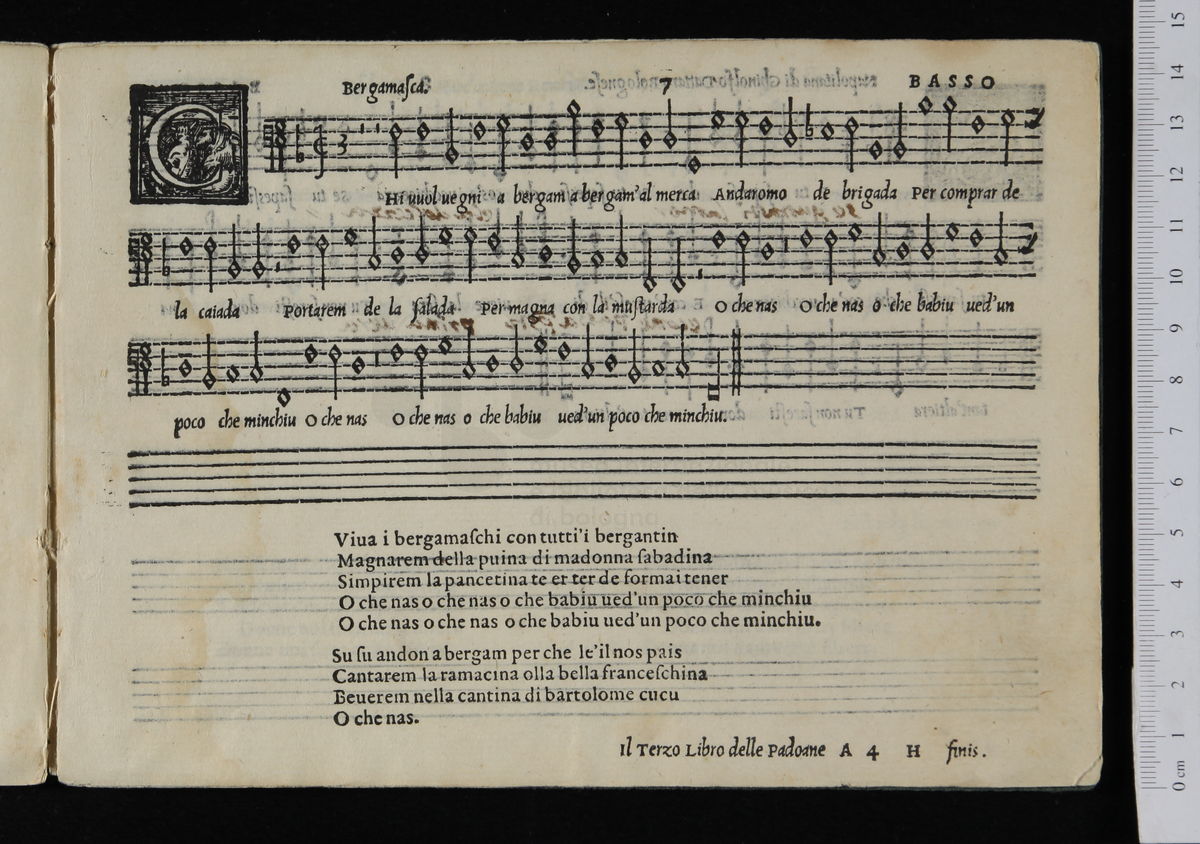 Bergamaſca. 7 BASSO
C Hi uuol uegni a bergam a bergam'al merca Andaromo de brigada Per comprar de
la caiada Portarem de la ſalada Per magna con la muſtarda O che nas O che nas o che babiu ued'un
poco che minchiu O che nas O che nas o che babiu ued'un poco che minchiu.
Viua i bergamaſchi con tutti'i bergantin
Magnarem della puina di madonna ſabadina
Simpirem la pancetina te er ter de formai tener
O che nas o che nas o che babiu ued'un poco che minchiu
O che nas o che nas o che babiu ued'un poco che minchiu.
Su ſu andon a bergam per che le'il nos pais
Cantarem la ramacina olla bella franceſchina
Beuerem nella cantina di bartolome cucu
O che nas.
Il Terzo Libro delle Padoane A 4 H finis.
15
14
13
12
11
10
9
8
7
6
5
4
3
2
1
0 cm